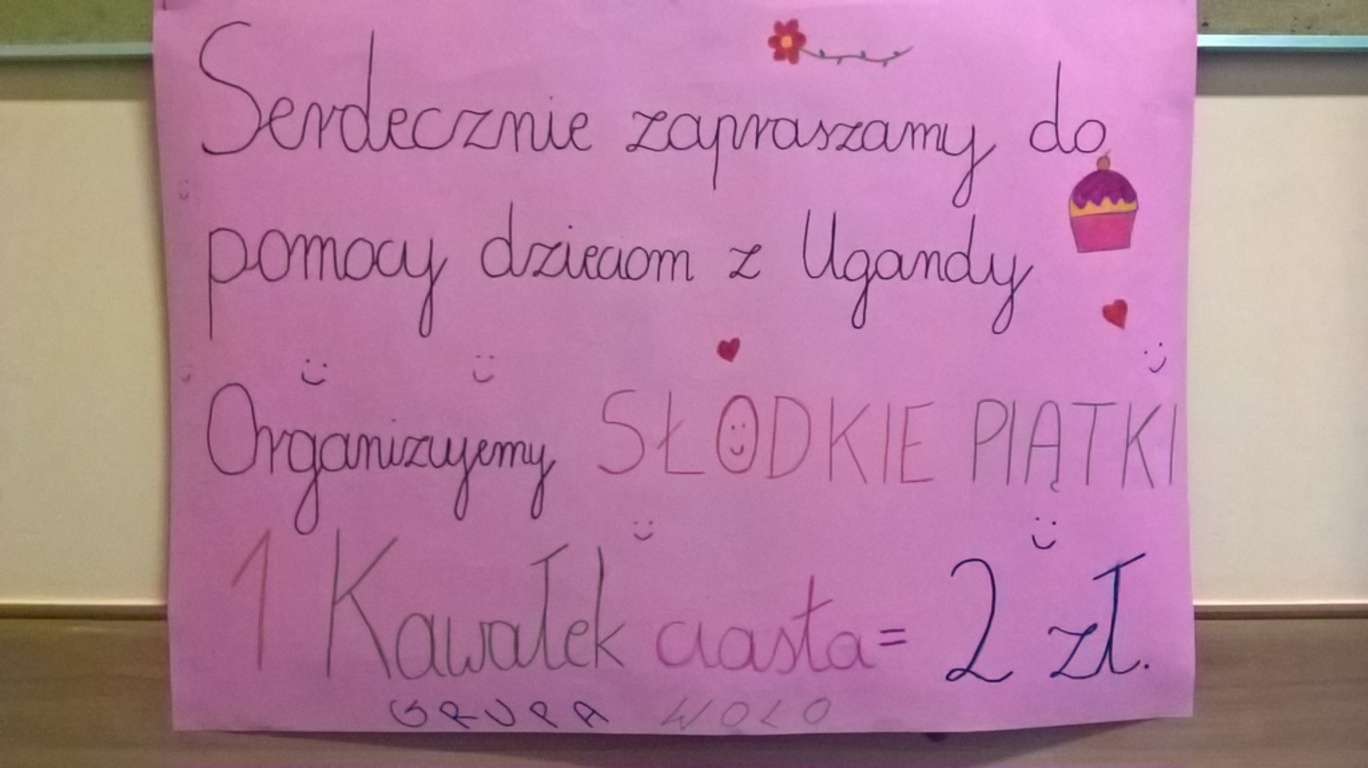 Serdecznie zapraszamy do
pomocy dzieciom z Ugandy
Organizujemy SŁODKIE PIĄTKI
1 Kawałek ciasta = 2 zł.
GRUPA WOLO